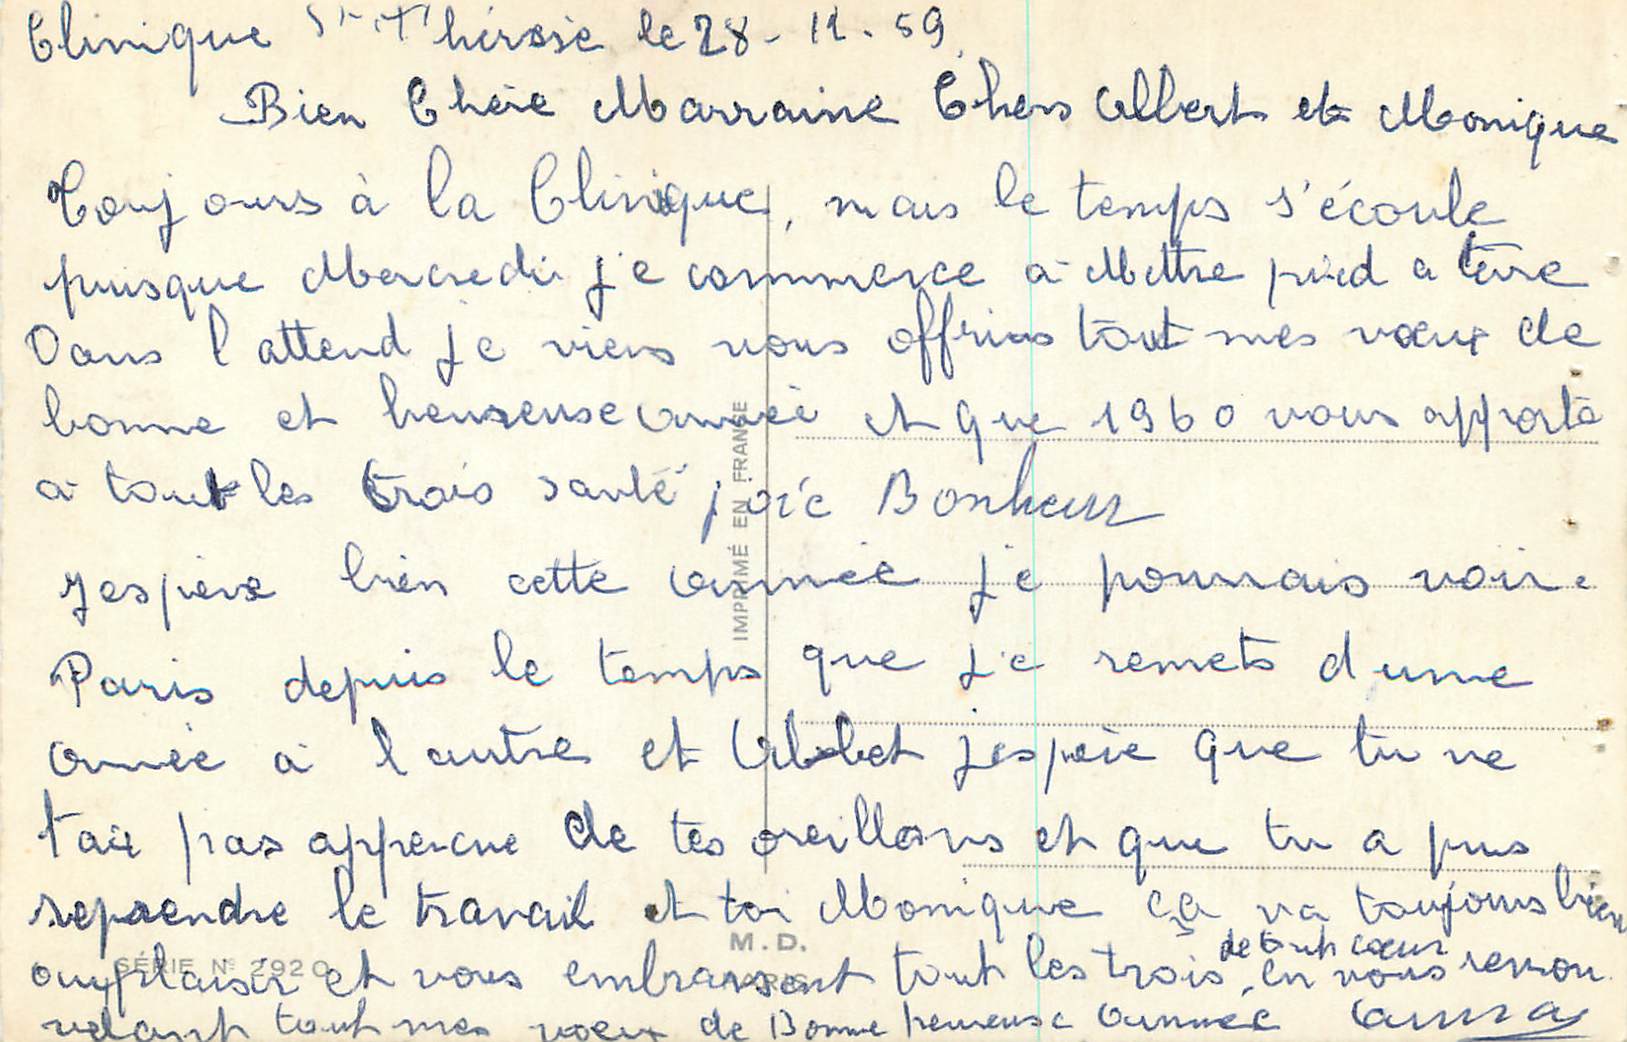 Clinique Ste Thérèse le 28-12.59
Bien Chère Marraine Chers Albert et Monique
Toujours à la Clinique, mais le temps s'écoule
puisque Mercredi je commence à Mettre pied a terre
Dans l'attend je viens vous offrirs tout mes vœux de
bonne et heureuse année et que 1960 vous apporte
a tout les trois santé joie Bonheur
Jespère bien cette année je pourrais voir
Paris depuis le temps que je remets d'une
année à l'autre et Albbet jespère que tu ne
tai pas apperçue de tes oreillons et que tu a pus
reprendre le travail et toi Monique ça va toujours bien
au plaisir et vous embrassent tout les trois de tout cœur en vous renou
velant tout mes vœux de Bonne heureuse année Anna
IMPRIMÉ EN FRANCE
M. D.
PARIS
SÉRIE N° 2920